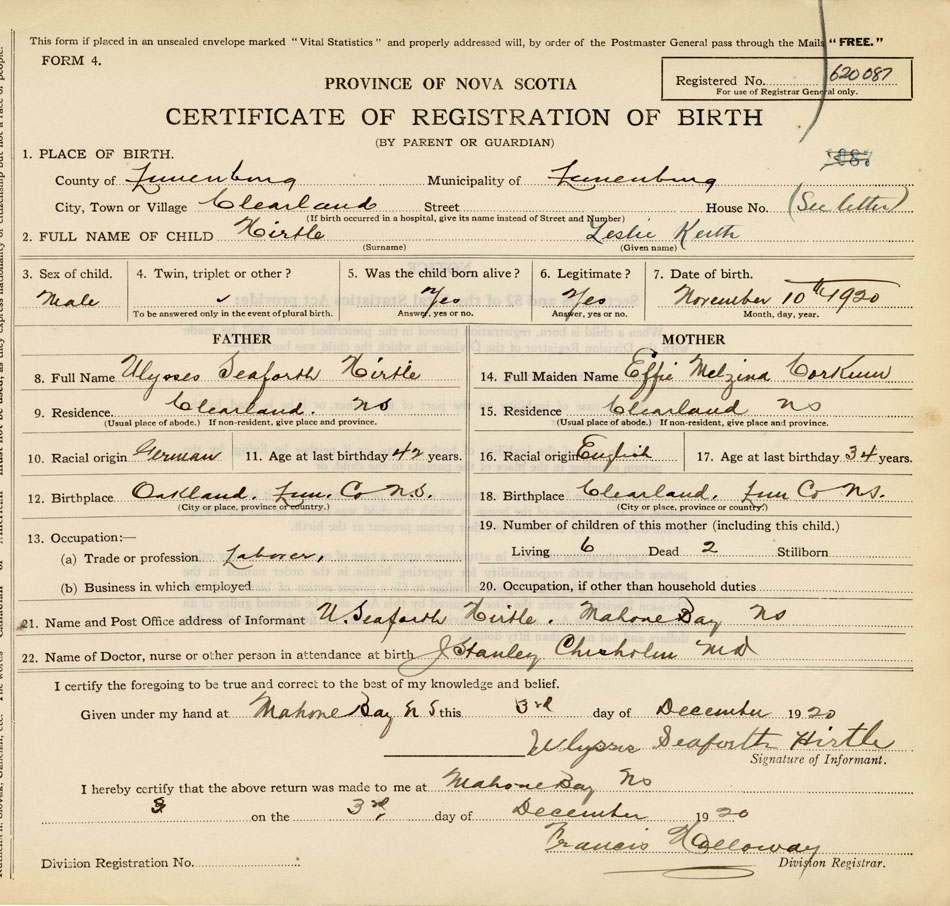 This form if placed in an unsealed envelope marked "Vital Statistics" and properly addressed will, by order of the Postmaster General pass through the Mails "FREE."
FORM 4.
Registered No. 620087
For use of Registrar General only.
PROVINCE OF NOVA SCOTIA
CERTIFICATE OF REGISTRATION OF BIRTH
(BY PARENT OR GUARDIAN)
1. PLACE OF BIRTH.
County of Lunenburg Municipality of Lunenburg
City, Town or Village Clearland Street House No. (See letter)
(If birth occurred in a hospital, give its name instead of Street and Number)
2. FULL NAME OF CHILD Hirtle Leslie Keith
(Surname) (Given name)
3. Sex of child. 4. Twin, triplet or other? 5. Was the child born alive? 6. Legitimate? 7. Date of birth.
Male Yes Yes November 10th 1920
To be answered only in the event of plural birth. Answer, yes or no. Answer, yes or no. Month, day, year.
FATHER MOTHER
8. Full Name Ulysses Seaforth Hirtle 14. Full Maiden Name Effie Melzina Corkum
9. Residence. Clearland. NS 15. Residence Clearland NS
(Usual place of abode.) If non-resident, give place and province. (Usual place of abode.) If non-resident, give place and province.
10. Racial origin German 11. Age at last birthday 42 years. 16. Racial origin English 17. Age at last birthday 34 years.
12. Birthplace Oakland. Lun. Co N.S. 18. Birthplace Clearland. Lun Co NS.
(City or place, province or country.) (City or place, province or country.)
13. Occupation:— 19. Number of children of this mother (including this child.)
(a) Trade or profession Laborer, Living 6 Dead 2 Stillborn
(b) Business in which employed 20. Occupation, if other than household duties
21. Name and Post Office address of Informant U. Seaforth Hirtle. Mahone Bay NS
22. Name of Doctor, nurse or other person in attendance at birth J Stanley Chisholm MD
I certify the foregoing to be true and correct to the best of my knowledge and belief.
Given under my hand at Mahone Bay N S this 3rd day of December 1920
Ulysses Seaforth Hirtle
Signature of Informant.
I hereby certify that the above return was made to me at Mahone Bay NS
on the 3rd day of December 1920
Francis Holloway
Division Registration No. Division Registrar.